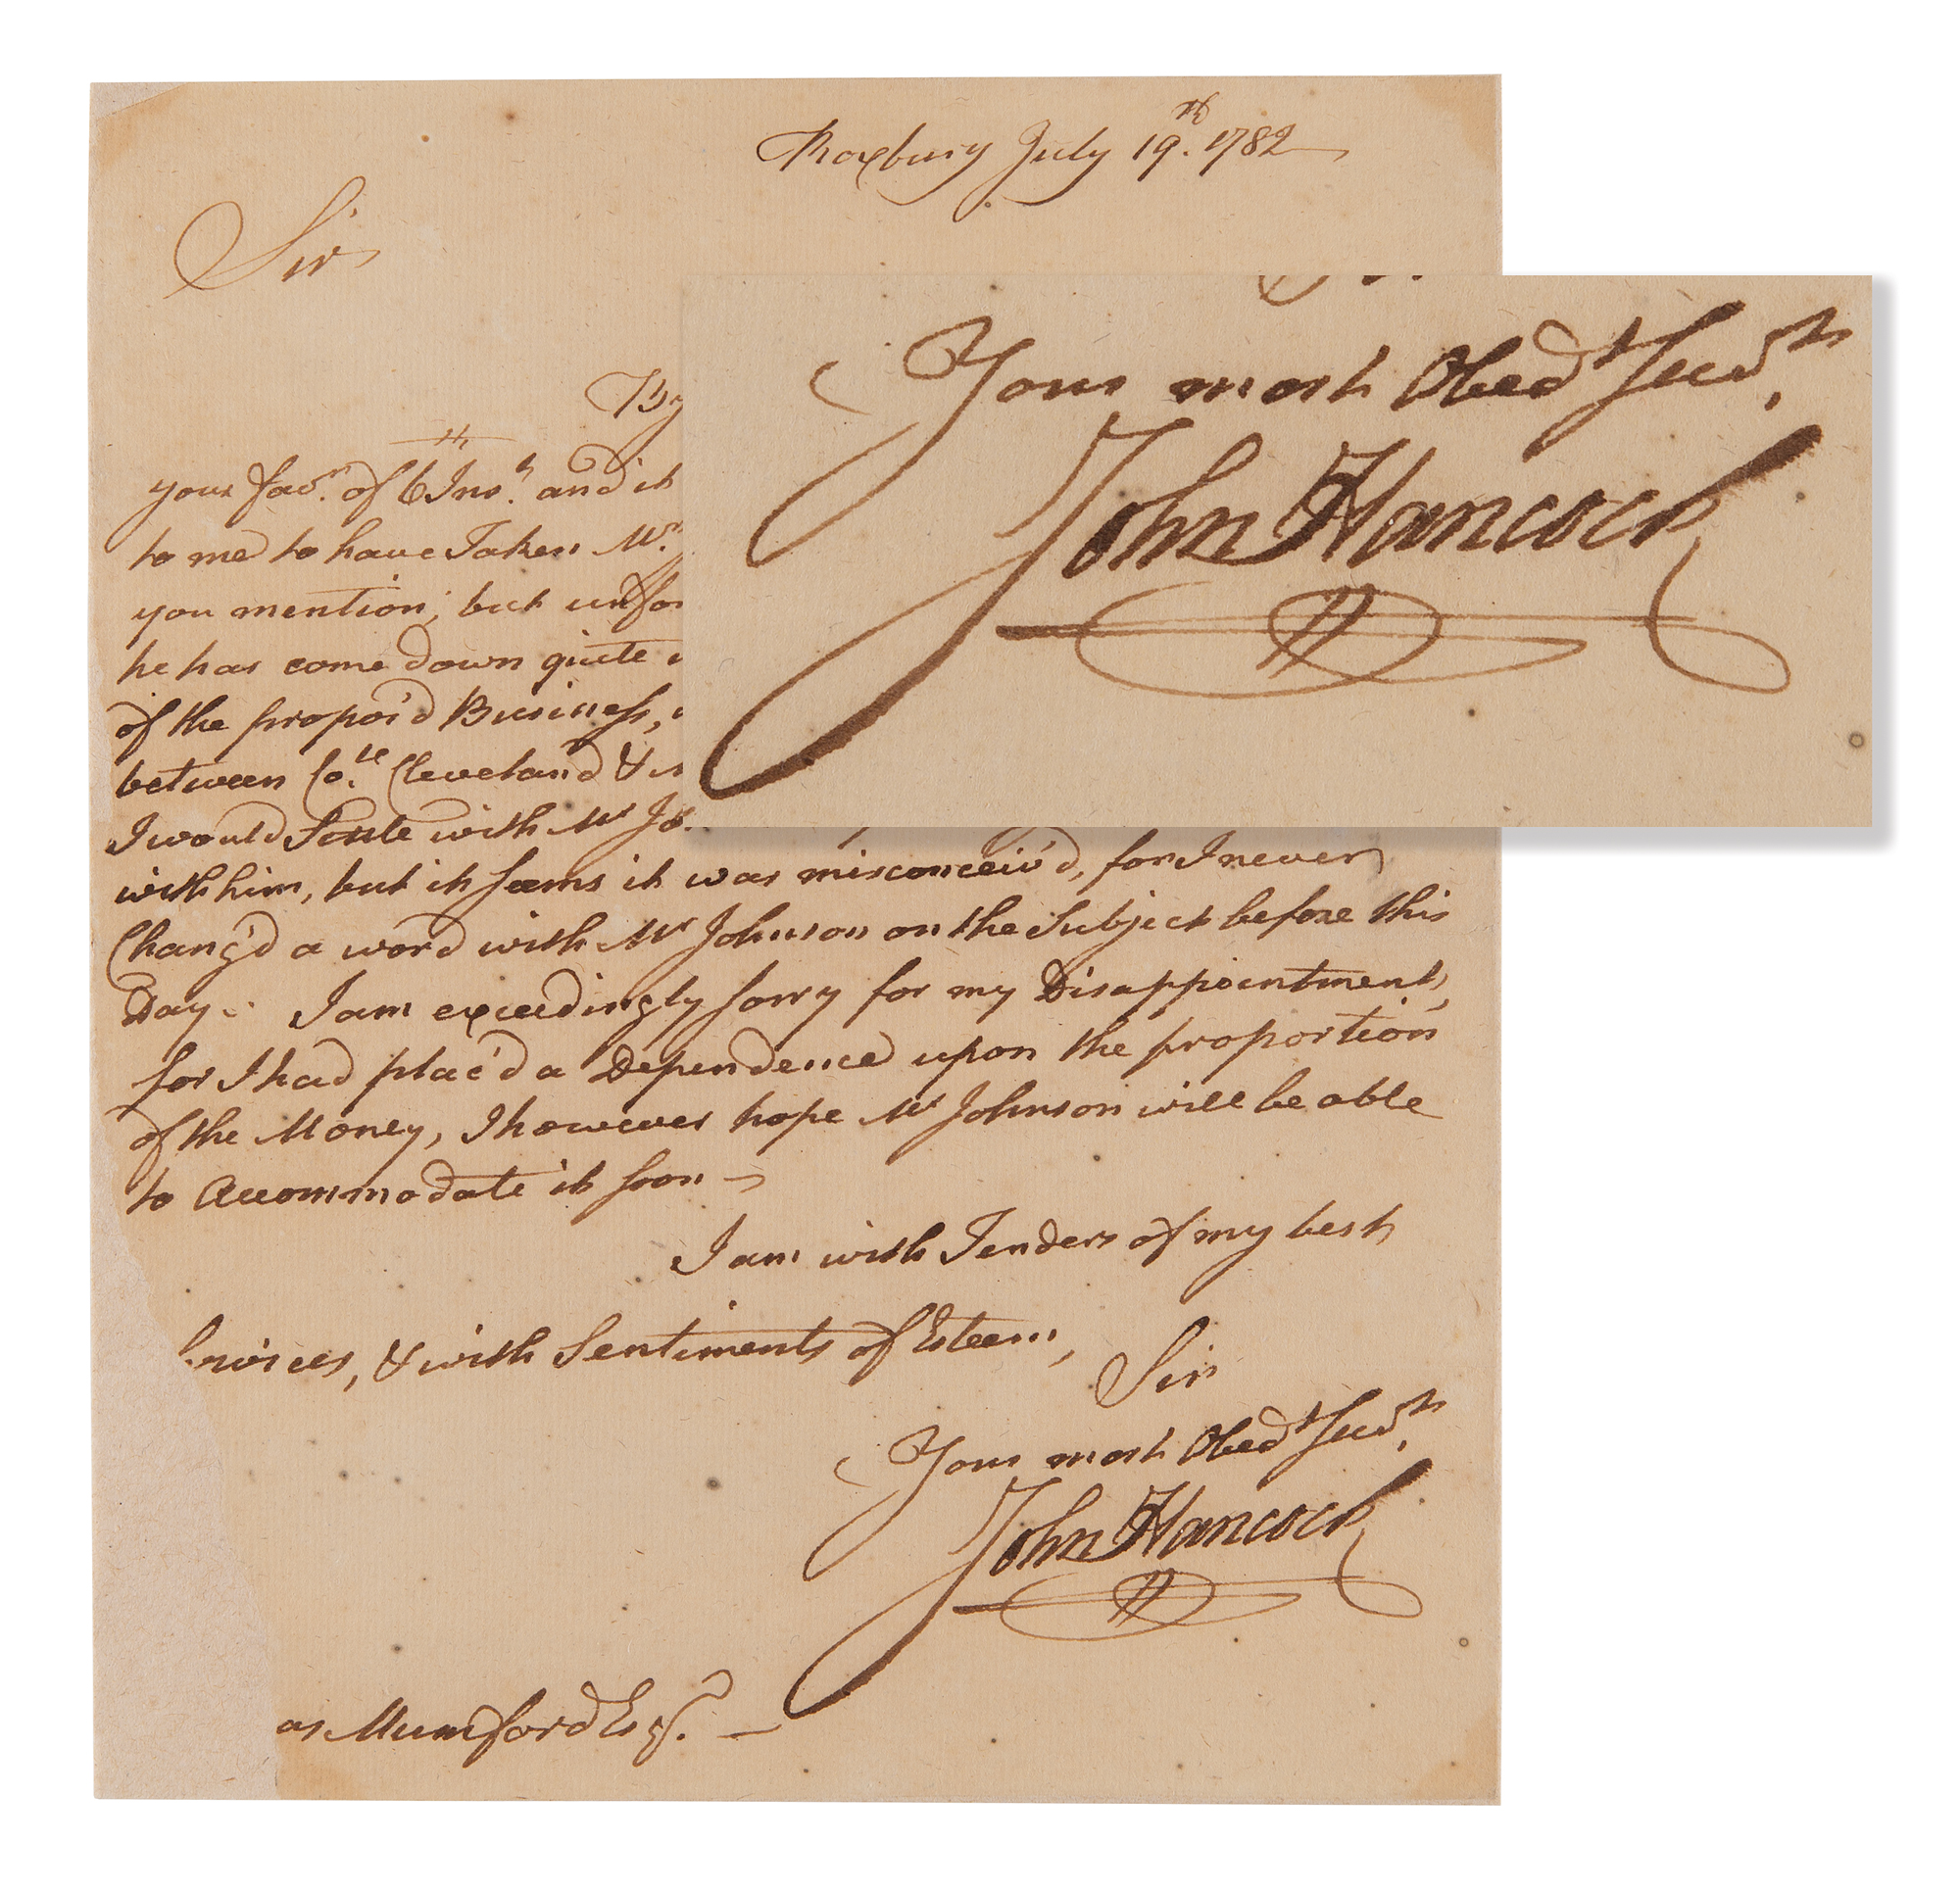 Roxbury July 19th. 1782
Sir
By
your favr. of 6th Inst. and it
to me to have Taken Mr.
you mention; but unfor
he has come down quite
of the propos'd Business,
between Co.le Cleveland &
I would Settle with Mr Jo
with him, but it seems it was misconceiv'd, for I never
Chang'd a word with Mr Johnson on the Subject before this
Day. I am exceedingly sorry for my Disappointment,
for I had plac'd a Dependence upon the proportion
of the Money, I however hope Mr Johnson will be able
to Accommodate it soon —
I am with Tenders of my best
Services, & with Sentiments of Esteem,
Sir
Your most Obedt Servt,
John Hancock
as Mumford Esq. —
Your most Obedt Servt,
John Hancock